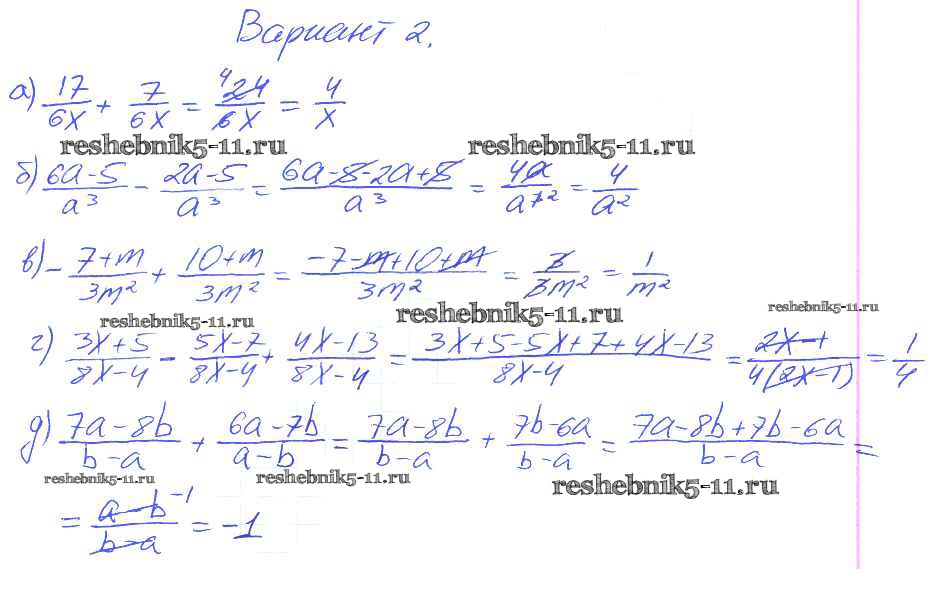 Вариант 2.
а) 17/6x + 7/6x = 24/6x = 4/x
4
reshebnik5-11.ru reshebnik5-11.ru
б) (6a-5)/a³ - (2a-5)/a³ = (6a-5-2a+5)/a³ = 4a/a³ = 4/a²
2
в) - (7+m)/3m² + (10+m)/3m² = (-7-m+10+m)/3m² = 3/3m² = 1/m²
reshebnik5-11.ru reshebnik5-11.ru reshebnik5-11.ru
г) (3x+5)/(8x-4) - (5x-7)/(8x-4) + (4x-13)/(8x-4) = (3x+5-5x+7+4x-13)/(8x-4) = (2x-1)/(4(2x-1)) = 1/4
д) (7a-8b)/(b-a) + (6a-7b)/(a-b) = (7a-8b)/(b-a) + (7b-6a)/(b-a) = (7a-8b+7b-6a)/(b-a) =
reshebnik5-11.ru reshebnik5-11.ru reshebnik5-11.ru
= (a-b)/(b-a) = -1
-1